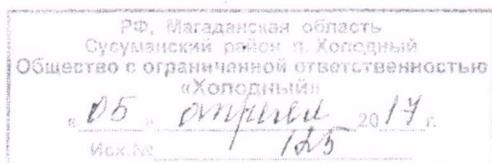 РФ, Магаданская область
Сусуманский район п. Холодный
Общество с ограниченной ответственностью
«Холодный»
« 05 » апреля 2017 г.
Исх.№ 125